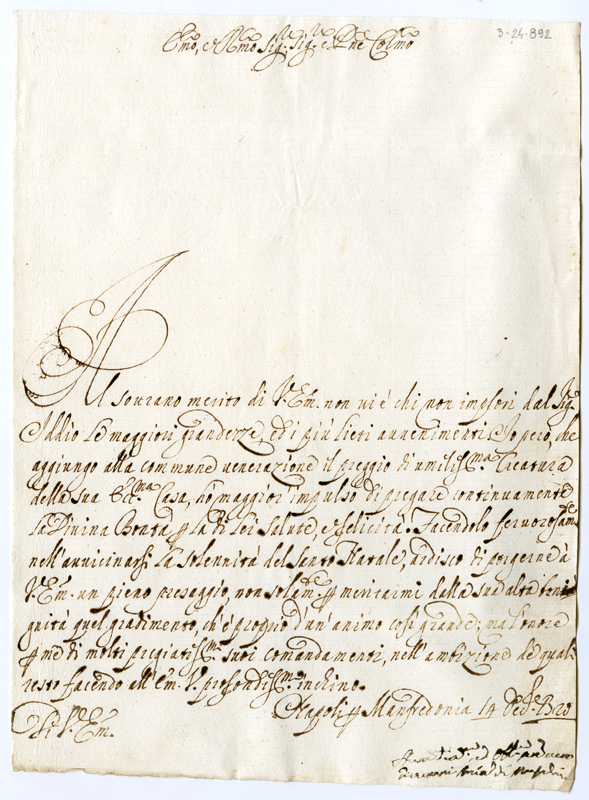 3-24-892
Emo, e Rmo Sig.r Sig.r e Pne Colmo
Al sourano merito di V. Em. non ui è chi non implori dal Sig.re
Iddio le maggiori grandezze, ed i più lieti auuenimenti. Io però, che
aggiungo alla commune uenerazione il preggio di umiliss.ma Creatura
della sua Ecc.ma Casa, hò maggior impulso di pregare continuamente
la Diuina Bontà p la di Lei salute, e felicità. Facendolo feruorosam.te
nell'auuicinarsi la solennità del Santo Natale, ardisco di porgerne à
V. Em. un pieno presaggio, non solam.te p meritarmi dalla sua alta beni
gnità quel gradimento, ch'è proprio d'un'animo così grande; ma l'onore
p me di molti pregiatiss.mi suoi comandamenti, nell'ambizione de quali
resto facendo all'Em. V. profondiss.mo inchino.
Napoli p Manfredonia 14 Dec.
Di V. Em.